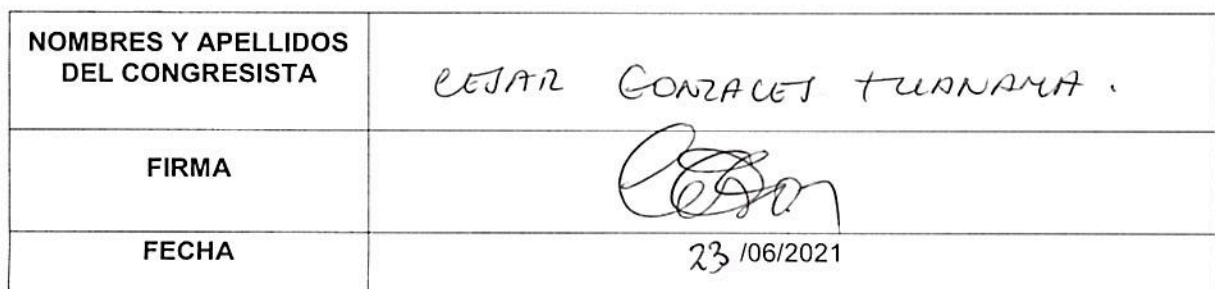 NOMBRES Y APELLIDOS
DEL CONGRESISTA
CESAR GONZALES TUANAMA.
FIRMA
FECHA
23/06/2021